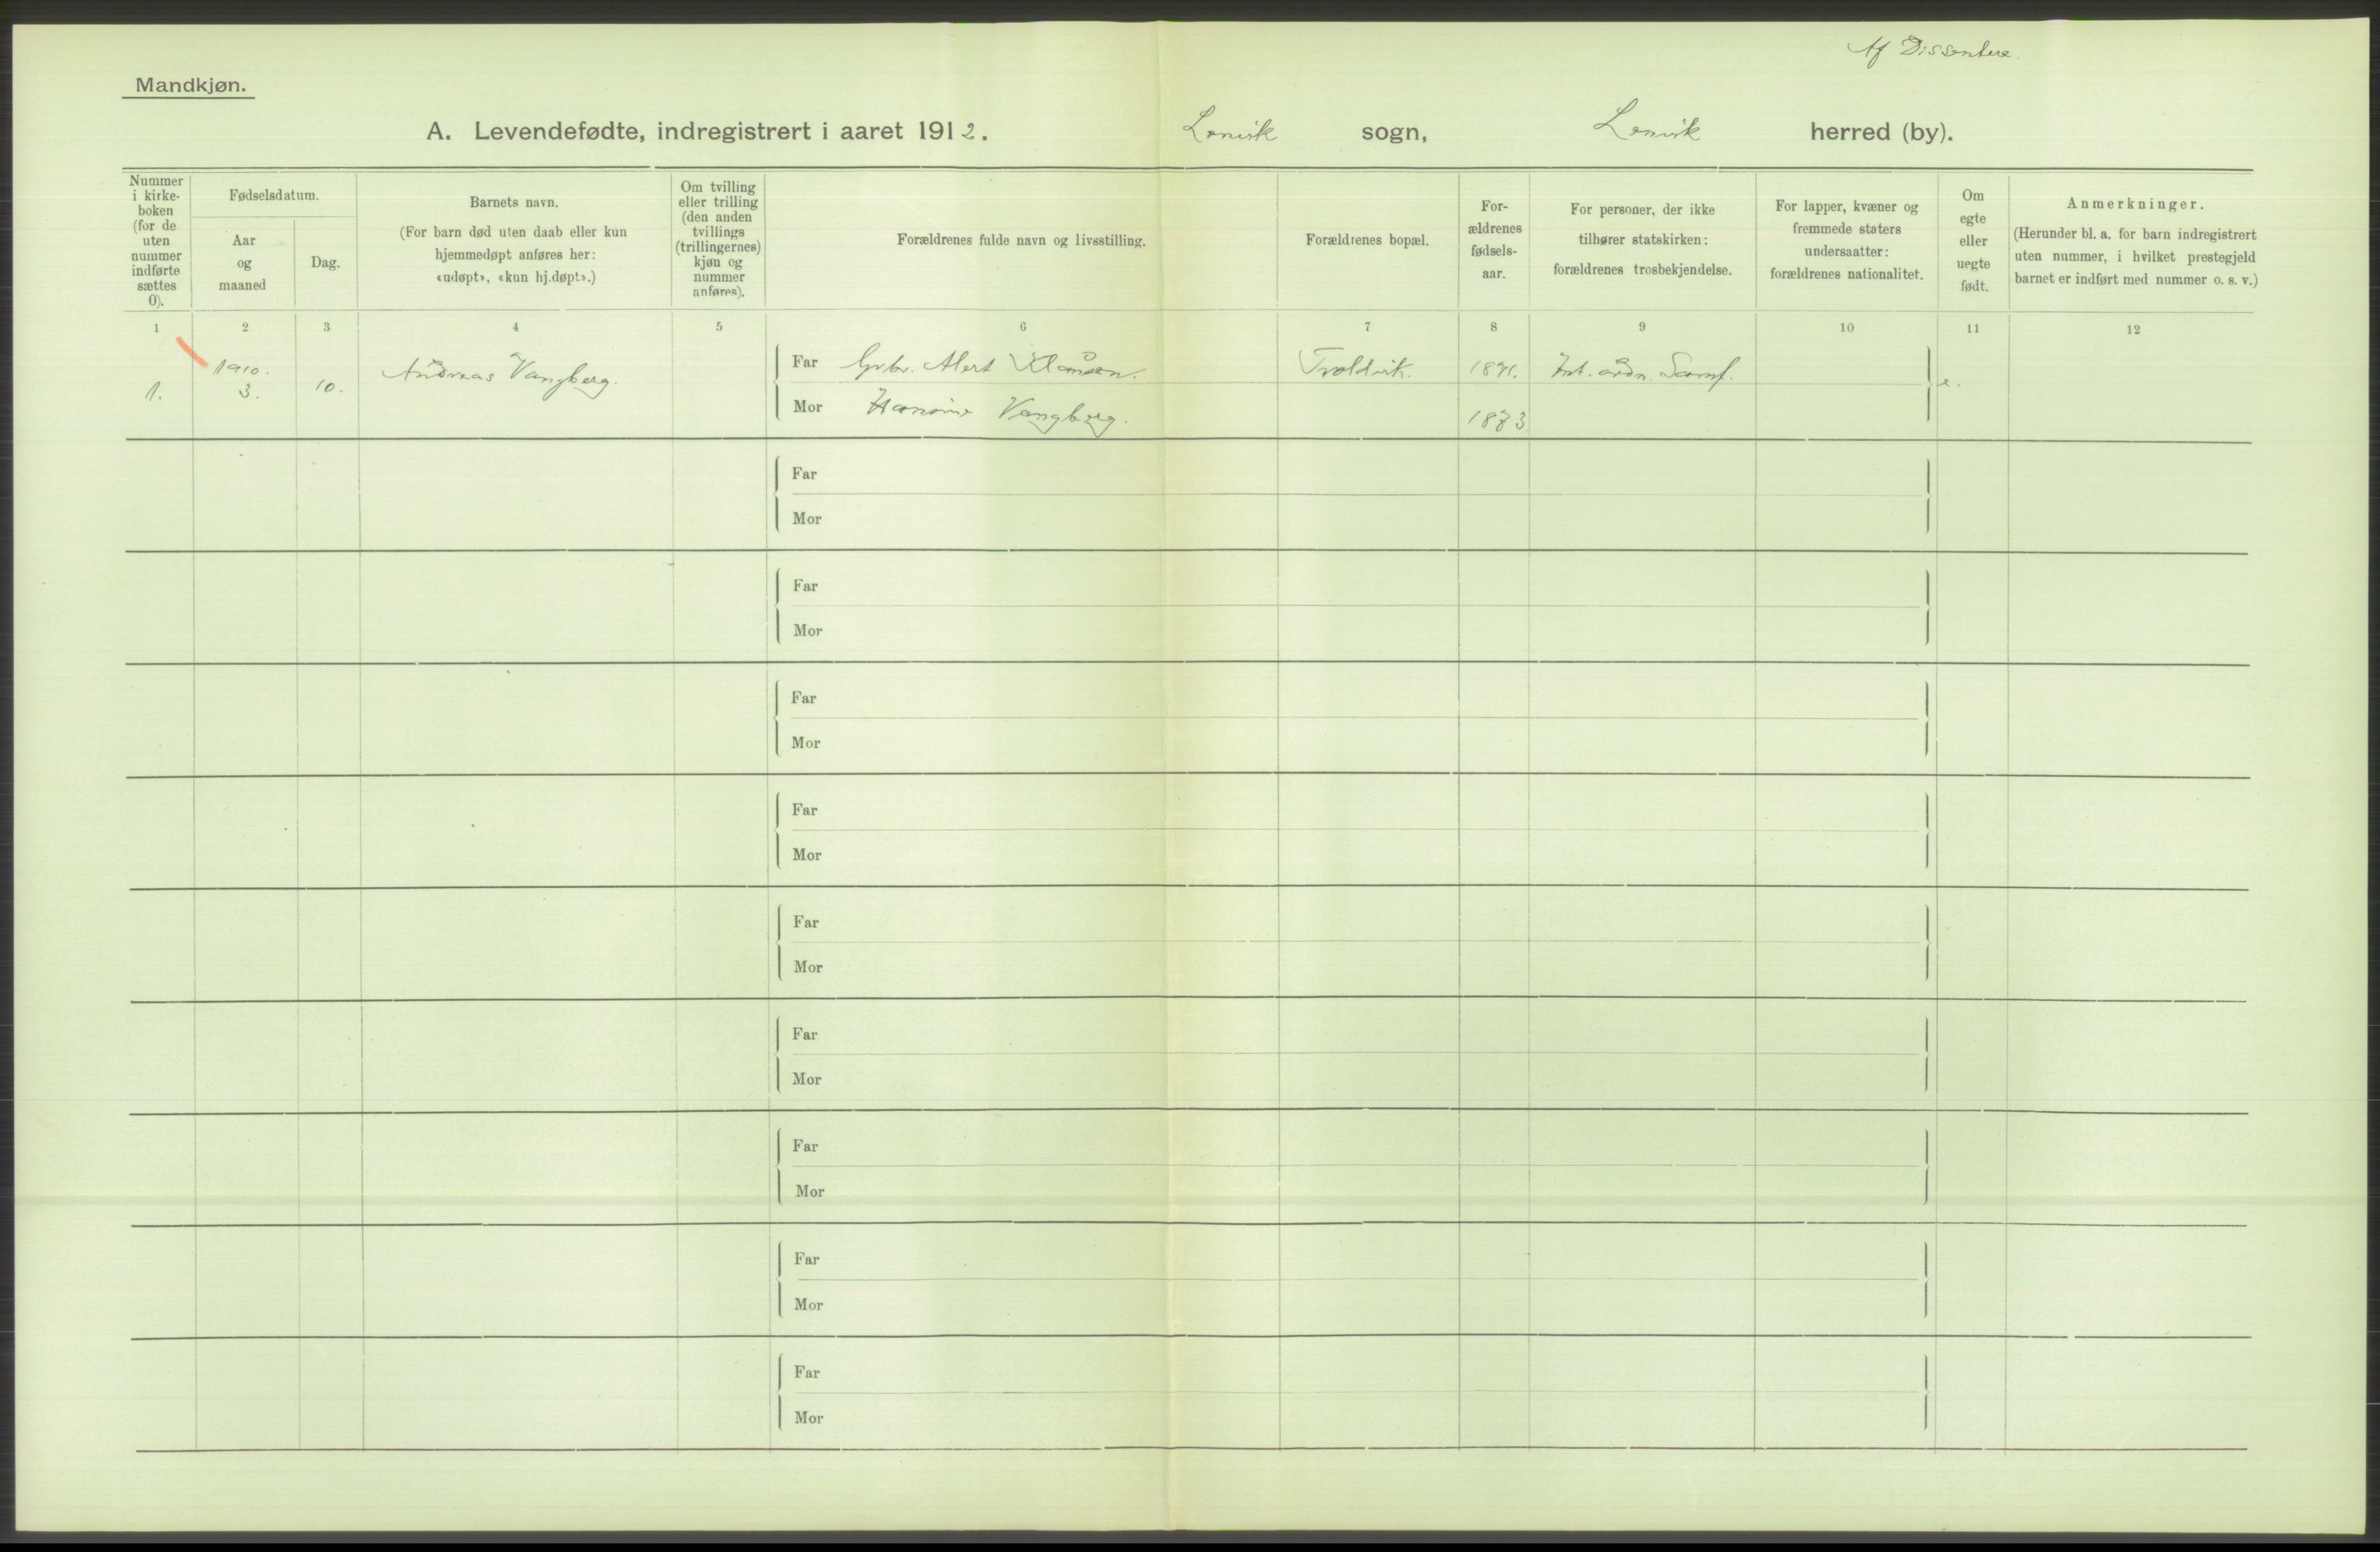 Af Dissentere.
Mandkjøn.
A. Levendefødte, indregistrert i aaret 1912. Lenvik sogn, Lenvik herred (by).
Nummer
i kirke-
boken
(for de
uten
nummer
indførte
sættes
0).
Fødselsdatum.
Aar
og
maaned
Dag.
Barnets navn.
(For barn død uten daab eller kun
hjemmedøpt anføres her:
«udøpt», «kun hj.døpt».)
Om tvilling
eller trilling
(den anden
tvillings
(trillingernes)
kjøn og
nummer
anføres).
Forældrenes fulde navn og livsstilling.
Forældrenes bopæl.
For-
ældrenes
fødsels-
aar.
For personer, der ikke
tilhører statskirken:
forældrenes trosbekjendelse.
For lapper, kvæner og
fremmede staters
undersaatter:
forældrenes nationalitet.
Om
egte
eller
uegte
født.
Anmerkninger.
(Herunder bl. a. for barn indregistrert
uten nummer, i hvilket prestegjeld
barnet er indført med nummer o. s. v.)
1 2 3 4 5 6 7 8 9 10 11 12
1. 1910. 3. 10. Andreas Vangberg.
Far Gbr. Alert Klausen. Troldvik. 1871. Int. ordn. Samf. e.
Mor Hansine Vangberg. 1873
Far
Mor
Far
Mor
Far
Mor
Far
Mor
Far
Mor
Far
Mor
Far
Mor
Far
Mor
Far
Mor